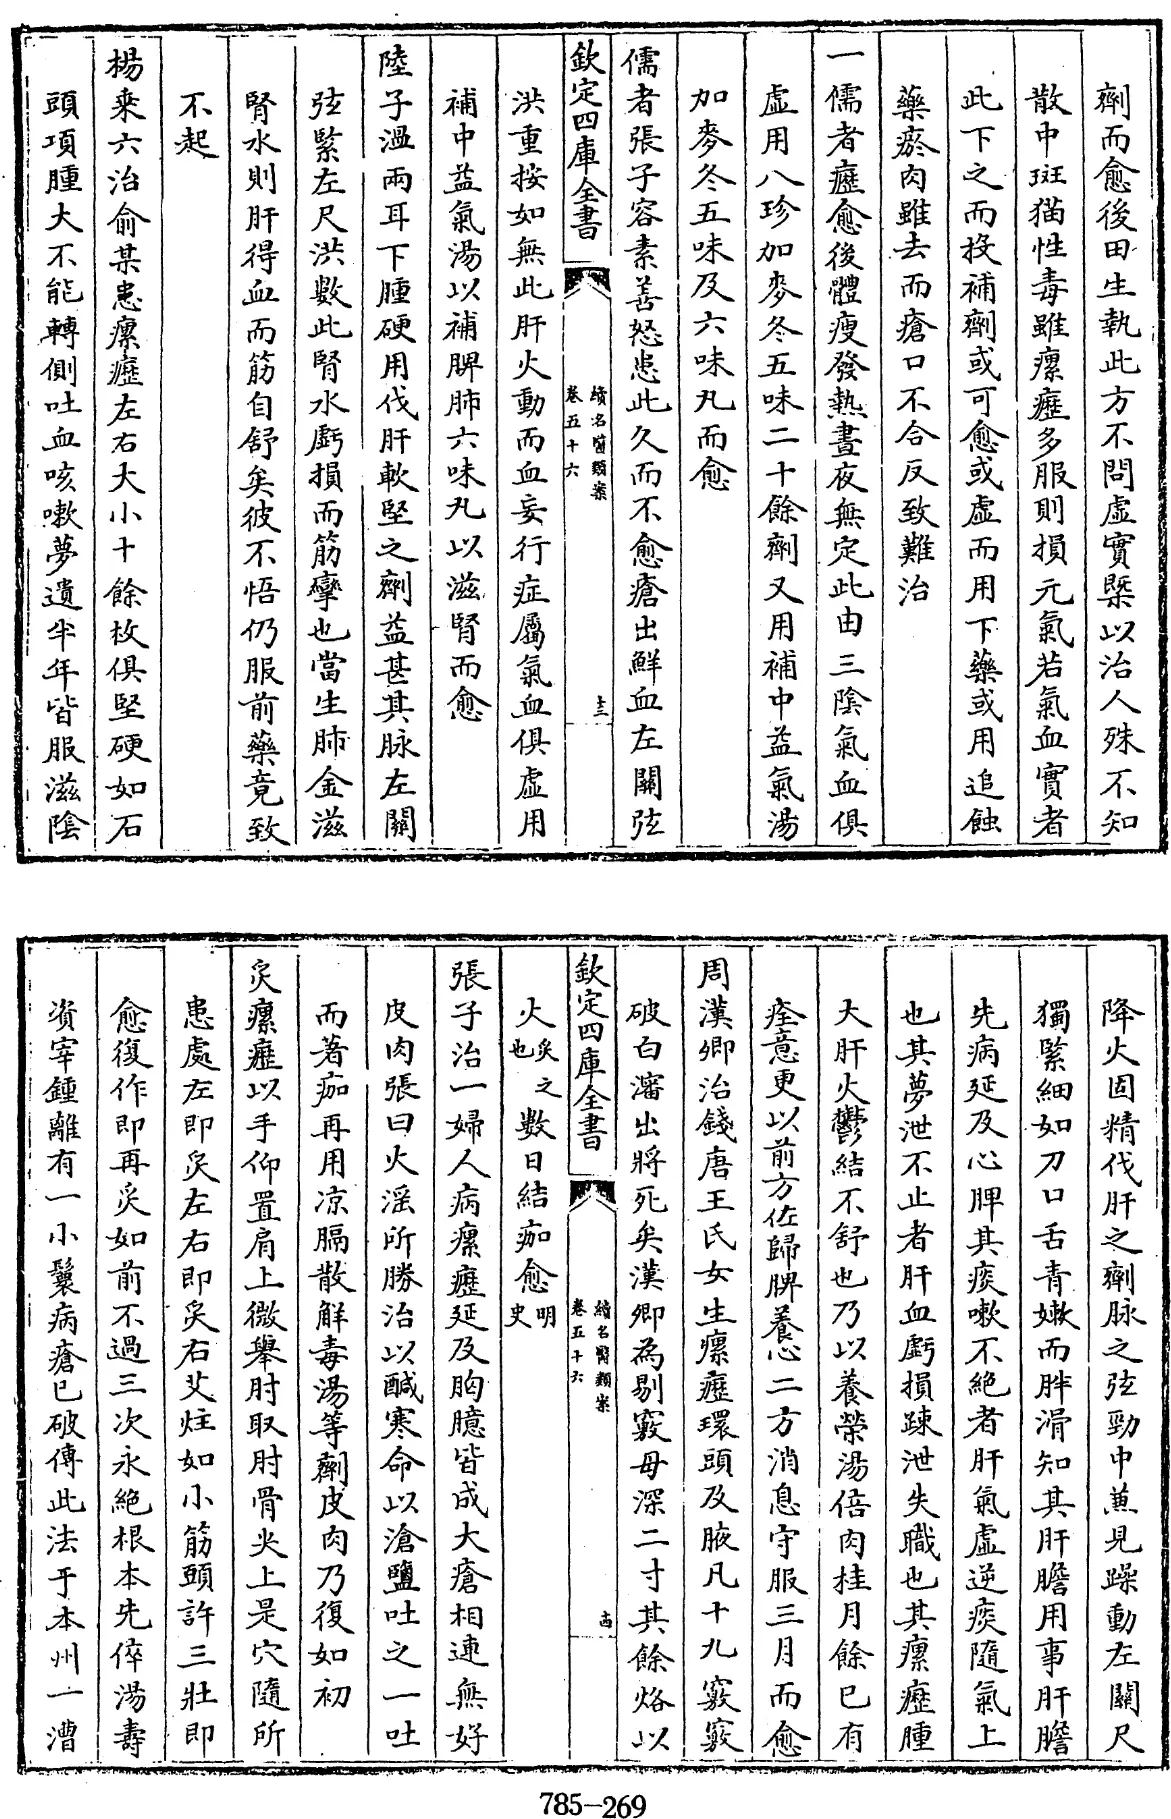 劑而愈後田生執此方不問虛實槩以治人殊不知
散中斑猫性毒雖瘰癧多服則損元氣若氣血實者
此下之而投補劑或可愈或虛而用下藥或用追蝕
藥瘀肉雖去而瘡口不合反致難治
一儒者癧愈後體瘦發熱晝夜無定此由三陰氣血俱
虛用八珍加麥冬五味二十餘劑又用補中益氣湯
加麥冬五味及六味丸而愈
儒者張子容素善怒患此久而不愈瘡出鮮血左關弦
欽定四庫全書
續名醫類案
卷五十六
十三
洪重按如無此肝火動而血妄行症屬氣血俱虛用
補中益氣湯以補脾肺六味丸以滋腎而愈
陸子溫兩耳下腫硬用伐肝軟堅之劑益甚其脉左關
弦緊左尺洪數此腎水虧損而筋攣也當生肺金滋
腎水則肝得血而筋自舒矣彼不悟仍服前藥竟致
不起
楊乘六治俞某患瘰癧左右大小十餘枚俱堅硬如石
頭項腫大不能轉側吐血咳嗽夢遺半年皆服滋陰
降火固精伐肝之劑脉之弦勁中兼見躁動左關尺
獨緊細如刀口舌青嫰而胖滑知其肝膽用事肝膽
先病延及心脾其痰嗽不絕者肝氣虛逆痰隨氣上
也其夢泄不止者肝血虧損踈泄失職也其瘰癧腫
大肝火鬱結不舒也乃以養榮湯倍肉桂月餘已有
痊意更以前方佐歸脾養心二方消息守服三月而愈
周漢卿治錢唐王氏女生瘰癧環頭及腋凡十九竅竅
破白瀋出將死矣漢卿為剔竅母深二寸其餘烙以
欽定四庫全書
續名醫類案
卷五十六
十四
火炙之也數日結痂愈明史
張子治一婦人病瘰癧延及胸臆皆成大瘡相連無好
皮肉張曰火淫所勝治以鹹寒命以滄鹽吐之一吐
而著痂再用凉膈散解毒湯等劑皮肉乃復如初
炙瘰癧以手仰置肩上微舉肘取肘骨尖上是穴隨所
患處左即炙左右即炙右艾炷如小筯頭許三壯即
愈復作即再炙如前不過三次永絕根本先倅湯壽
資宰鍾離有一小鬟病瘡已破傳此法于本州一漕
785-269